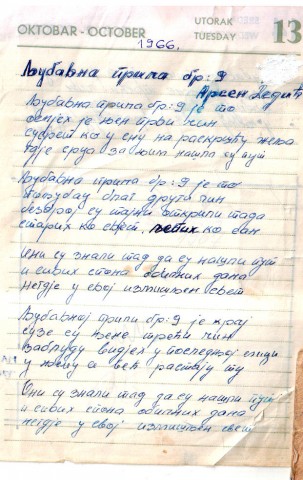 OKTOBAR - OCTOBER
UTORAK
TUESDAY
13
1966.
Љубавна прича бр: 9
Арсен Дедић
Љубавна прича бр: 9 је то
осмјех је њен први чин
сусрет ко у сну на раскршћу жеља
гдје срца за њима нашла су пут
Љубавна прича бр: 9 је то
пољубац благ други чин
безброј су тајни открили тада
старих ко свет, љепих ко сан
Они су знали тад да су нашли пут
и сивих стона обичних дана
негдје у свој измишљен свет
Љубавној причи бр: 9 је крај
сузе су њене трећи чин
заблуду видјех у последњој сцени
у њему а већ растају ту
Они су знали тад да су нашли пут
и сивих стона обичних дана
негдје у свој измишљен свет